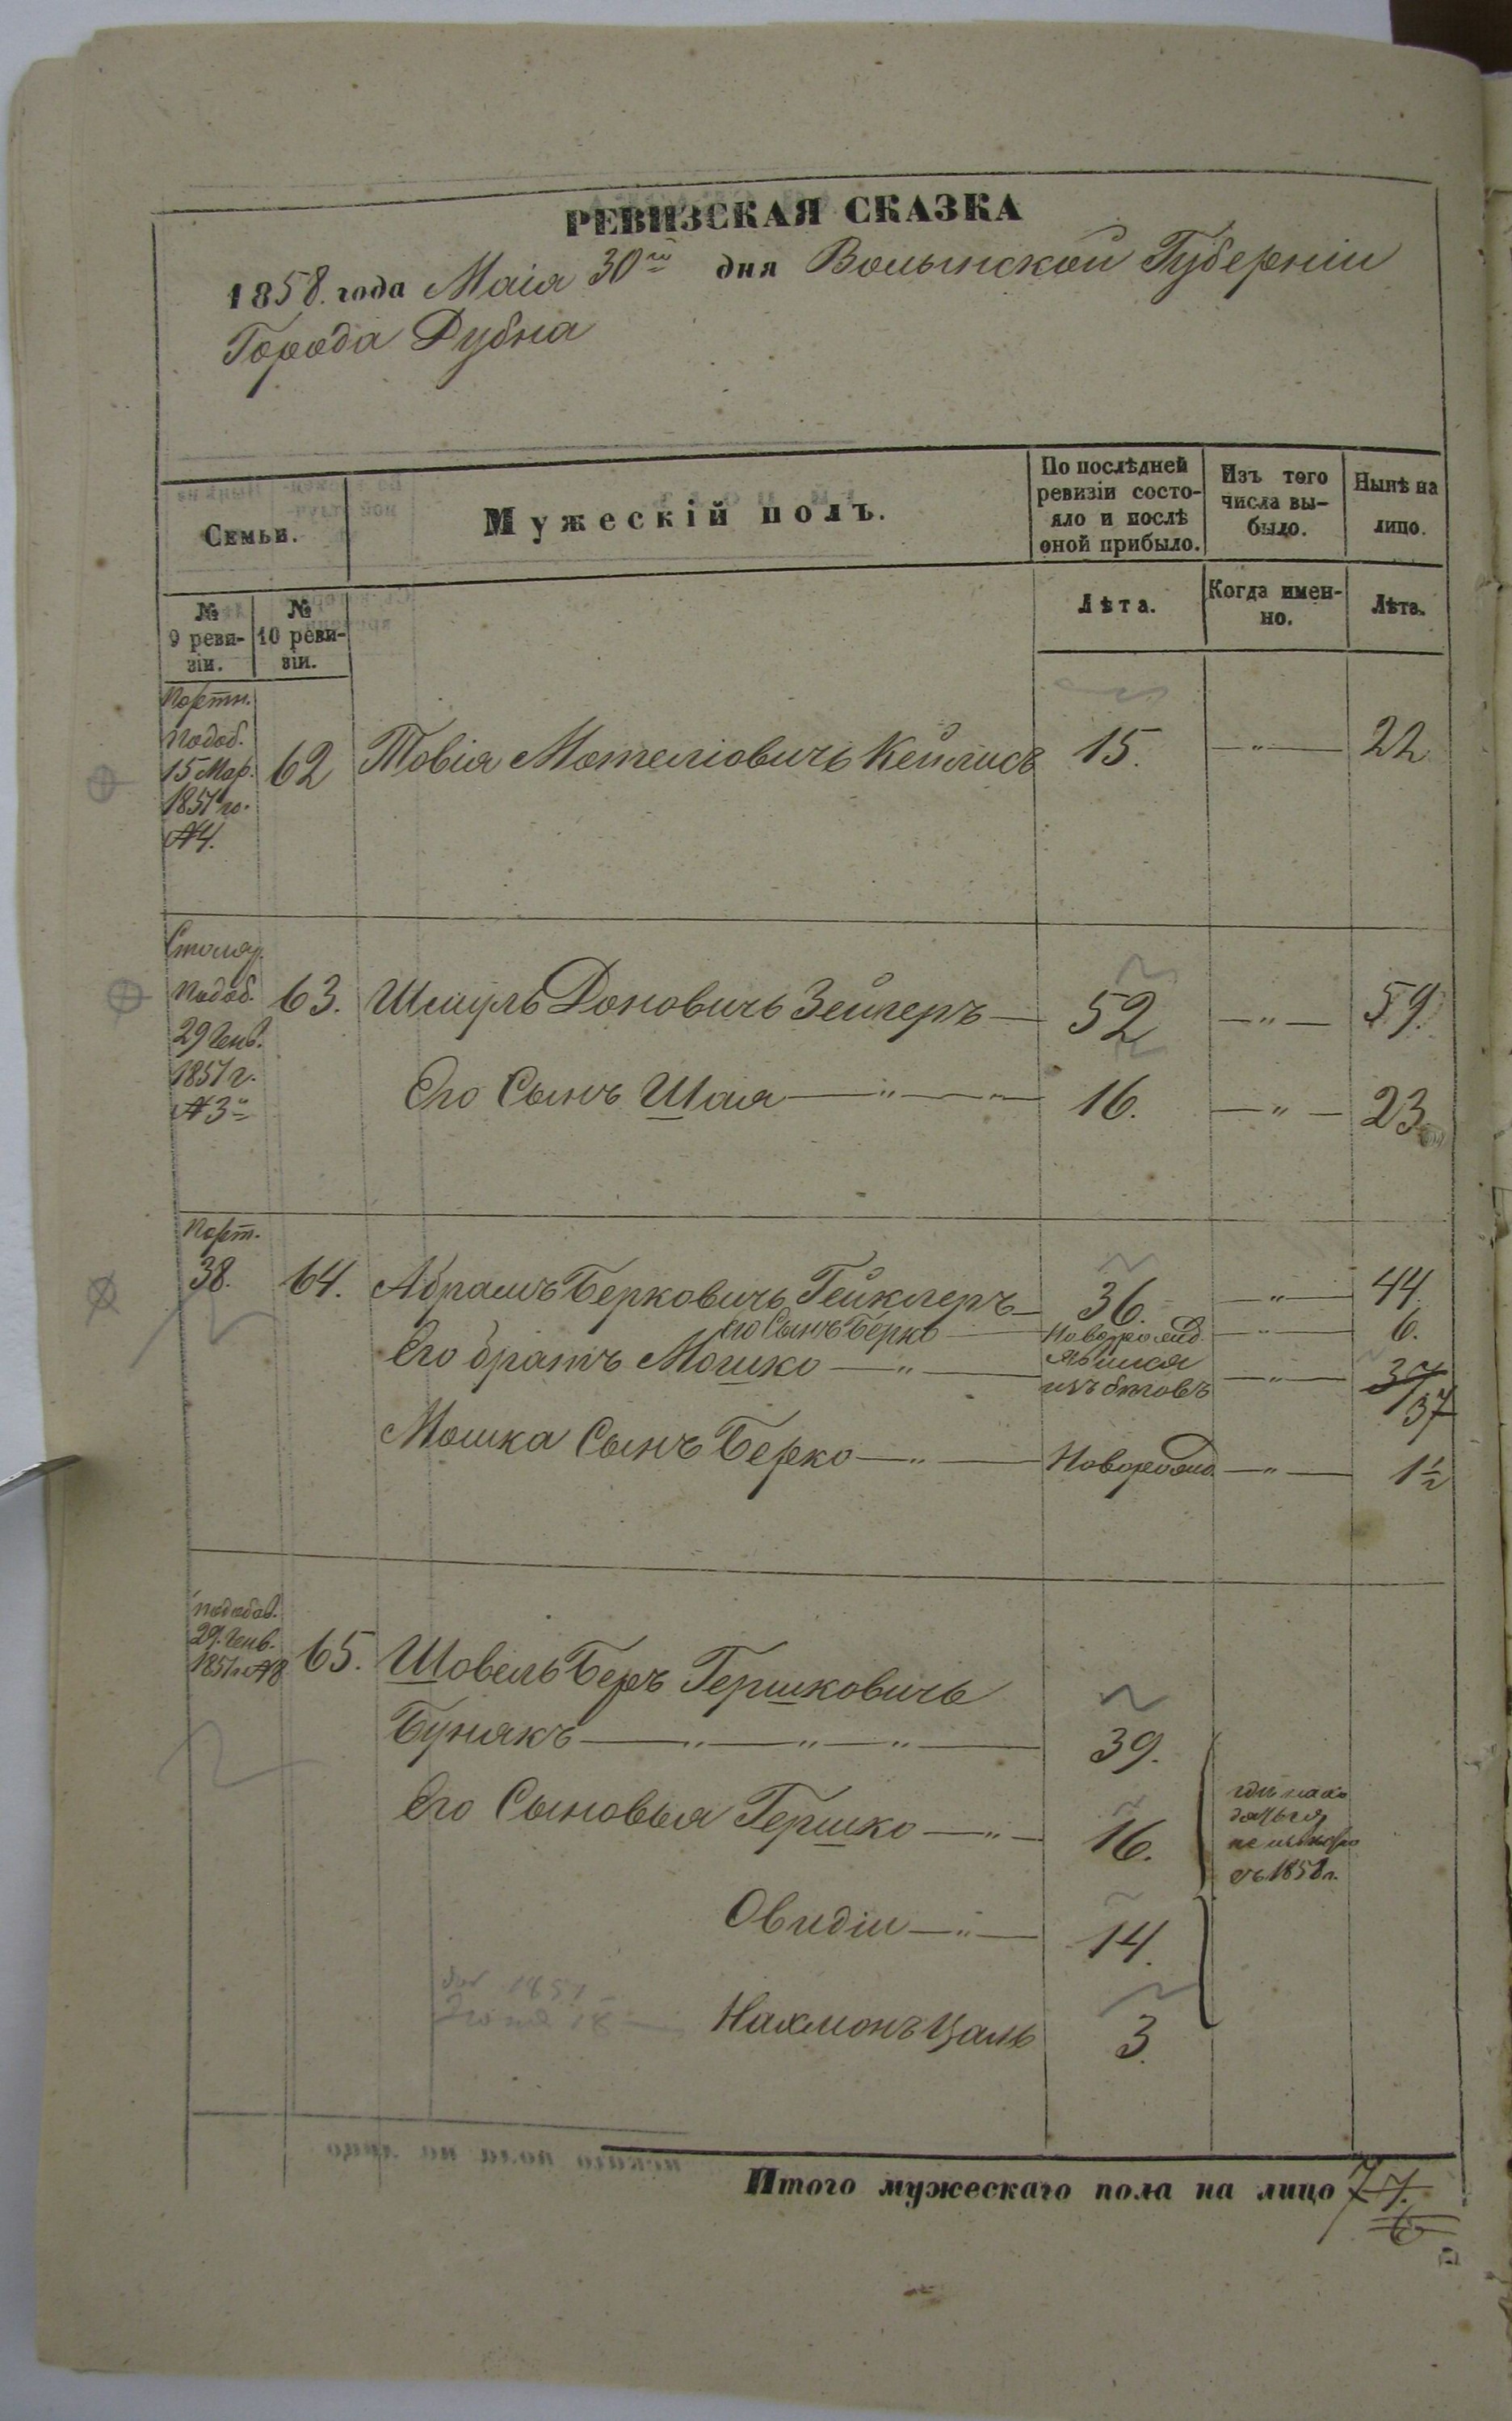 РЕВИЗСКАЯ СКАЗКА
1858. года Маія 30го дня Волынской Губерніи
Города Дубна
Семьи.
Мужескій полъ.
По послѣдней ревизіи состо-
яло и послѣ
оной прибыло.
Изъ того
числа вы-
было.
Нынѣ на
лицо.
№
9 реви-
зіи.
№
10 реви-
зіи.
Лѣта.
Когда имен-
но.
Лѣта.
Портн.
подоб.
15 Мар.
1851 го.
№4.
62 Товія Мотеліовичь Кейлисъ 15. —"— 22
Столяр.
подоб.
29 Генв.
1851 г.
№3
63. Шмуль Доновичь Зейгеръ — 52 —"— 59.
Его Сынъ Шая —"— 16. —"— 23
Порт.
38. 64. Абрамъ Берковичь Гейклеръ 36. —"— 44
Его Сынъ Берко — Новорожд. —"— 6.
Его братъ Мошко —"— явился
изъ бѣговъ —"— 37
37
Мошка Сынъ Берко —"— Новорожд. —"— 1½
подобав.
29. Генв.
1851 г №8
65. Шовель Беръ Гершковичь
Бунякъ —"—"—"— 39.
Его Сыновья Гершко —"— 16.
не
съ 1858 г.
Овидіи —"— 14.
Нахмонъ Цаль 3.
Итого мужескаго пола на лицо 7 7.
6